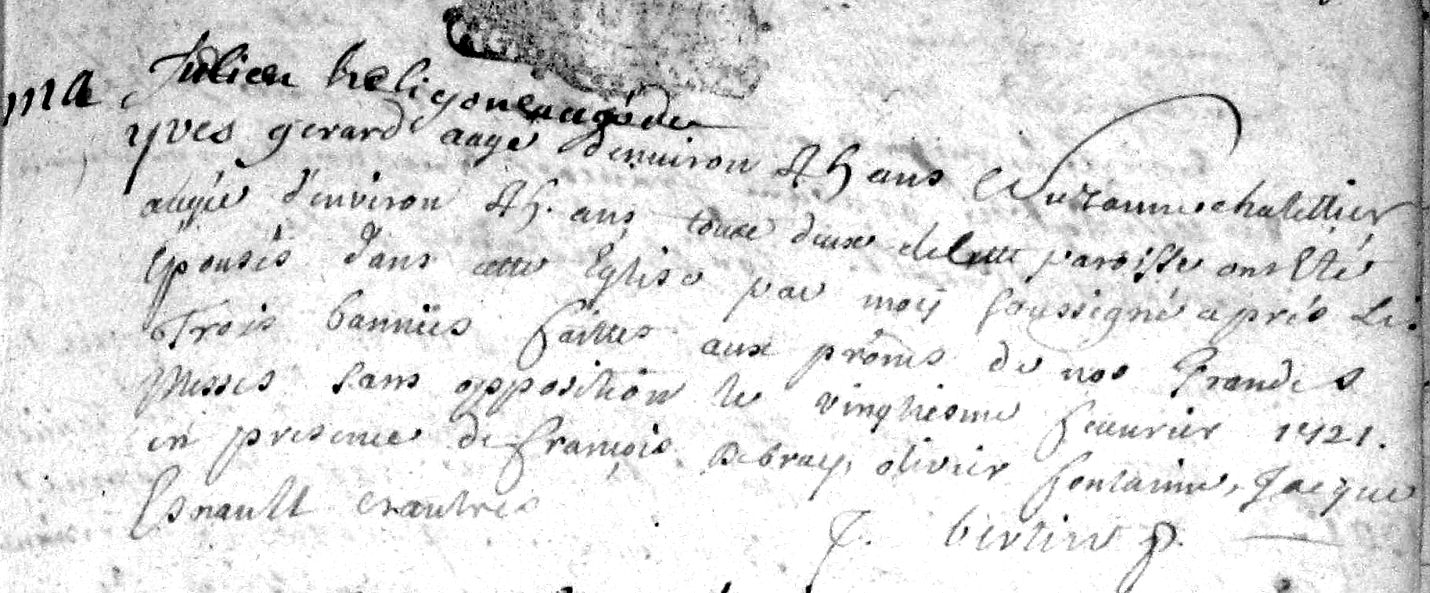 ma Julien heligon aagé de
yves gerard aagé d'enuiron 45 ans & Suzanne chalettier
aagée d'environ 45. ans touse deux de cette paroisse ont Eté
Epousés dans cette Eglise par moy soussigné après Les
Trois bannies faittes aux prônes de nos Grandes
Messes sans opposition le vingtiesme feuurier 1721.
en presence de françois debray, olivier fontaine, Jacque
Esnault & autres